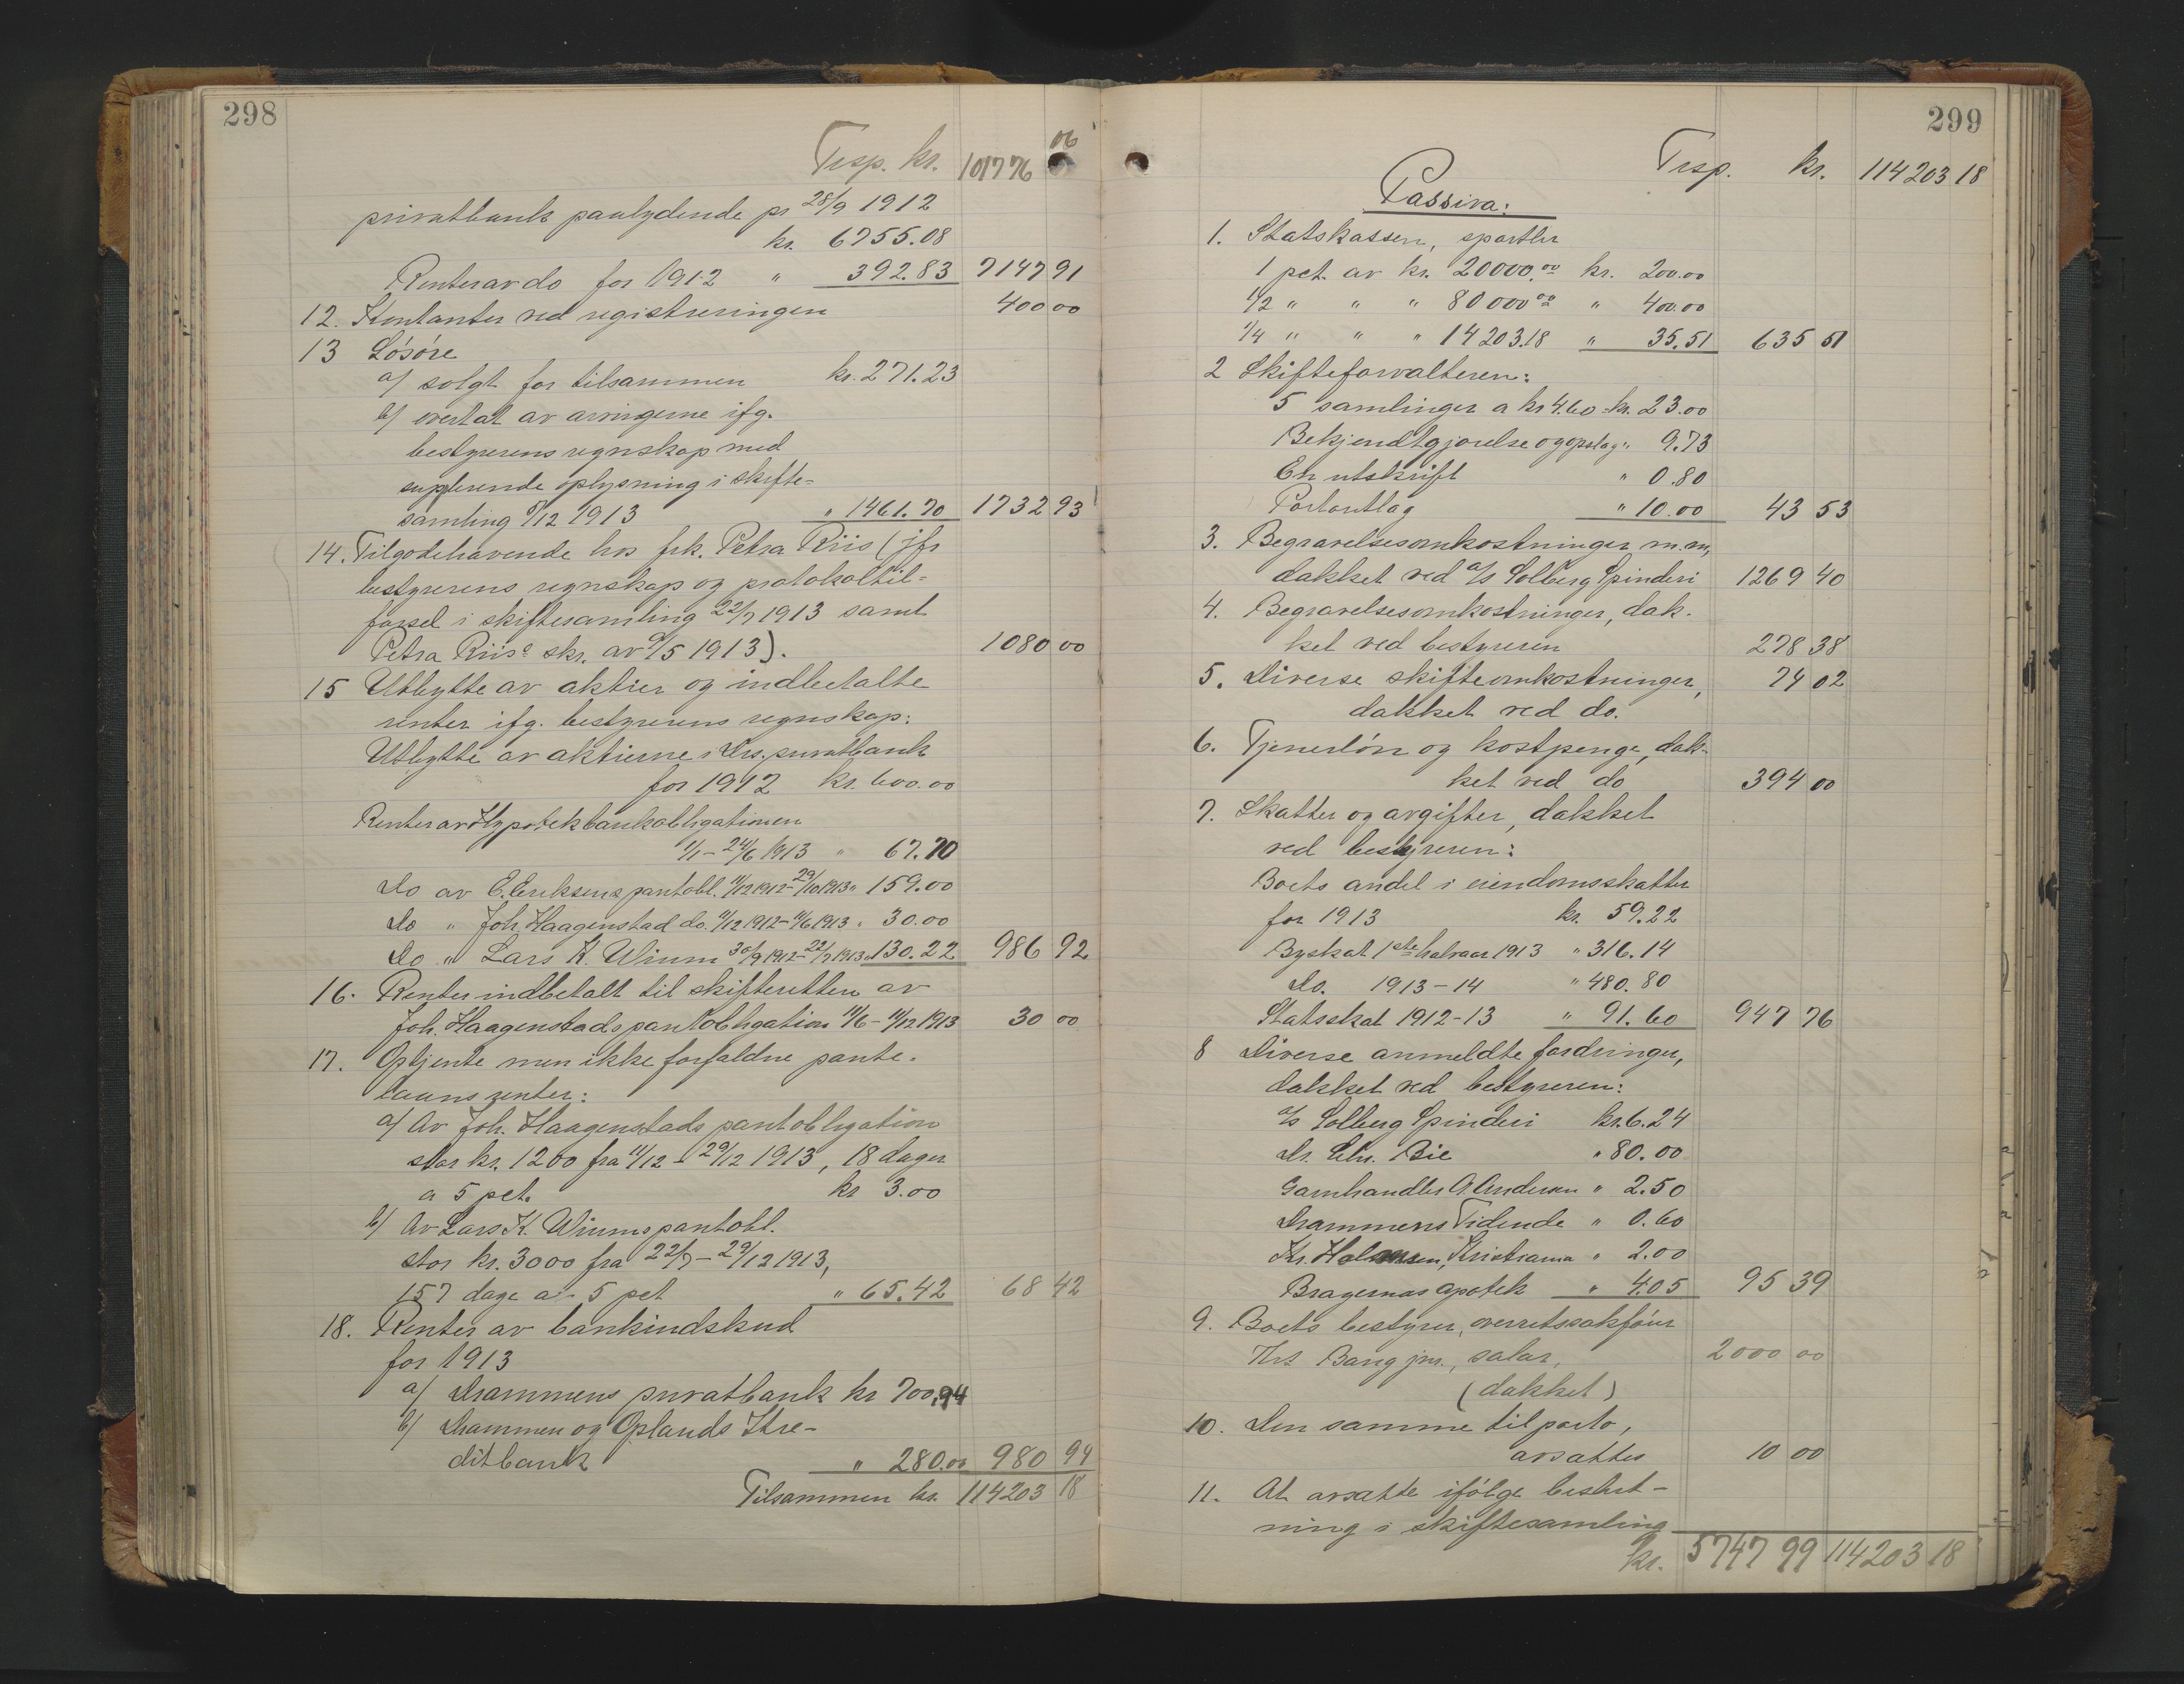 298
Trsp. kr. 101776 06
privatbank paalydende pr 28/9 1912
kr. 6755.08
Renter av do for 1912 " 392.83 7147 91
12. Kontanter ved registreringen 400 00
13 Løsøre
a/ solgt for tilsammen kr. 271.23
b/ overtat av arvingerne ifg.
bestyrerens regnskap med
supplerende oplysning i skifte-
samling 5/12 1913 " 1461.70 1732 93
14. Tilgodehavende hos frk. Petra Riis (jfr
bestyrerens regnskap og protokoltil-
førsel i skiftesamling 22/7 1913 samt
Petra Riis's skr. av 9/5 1913). 1080 00
15 Utbytte av aktier og indbetalte
renter ifg. bestyrerens regnskap:
Utbytte av aktierne i Drs. privatbank
for 1912 kr. 600.00
Renter av Hypotekbankobligationen
1/1 - 24/6 1913 " 67.70
Do av E. Eriksens pantobl. 11/12 1912 - 29/10 1913 " 159.00
Do " Joh. Haagenstad do. 11/12 1912 - 11/6 1913 " 30.00
Do " Lars K. Wium 30/9 1912 - 22/7 1913 " 130.22 986 92
16. Renter indbetalt til skifteretten av
Joh. Haagenstads pantobligation 11/6 - 11/12 1913 30 00
17. Optjente men ikke forfaldne pante-
laans renter:
a/ Av Joh. Haagenstads pantobligation
stor kr. 1200 fra 11/12 - 29/12 1913, 18 dager
a 5 pct. kr 3.00
b/ Av Lars K. Wiums pantobl.
stor kr. 3000 fra 22/7 - 29/12 1913,
157 dage a 5 pct " 65.42 68 42
18. Renter av bankindskud
for 1913
a/ Drammens privatbank kr 700.94
b/ Drammen og Oplands Kre-
ditbank " 280.00 980 94
Tilsammen kr. 114203 18
299
Trsp. kr. 114203 18
Passiva:
1. Statskassen, sportler
1 pct. av kr. 20000.00 kr. 200.00
1/2 " " " 80000 00 " 400.00
1/4 " " " 14203.18 " 35.51 635 51
2 Skifteforvalteren:
5 samlinger a kr 4.60 - kr. 23.00
Bekjendtgjørelse og opslag " 9.73
En utskrift " 0.80
Portoutlag " 10.00 43 53
3. Begravelsesomkostninger m.m,
dækket ved a/s Solberg Spinderi 1269 40
4. Begravelsesomkostninger, dæk-
ket ved bestyreren 278 38
5. Diverse skifteomkostninger, 74 02
dækket ved do.
6. Tjenerløn og kostpenge, dæk-
ket ved do 394 00
7. Skatter og avgifter, dækket
ved bestyreren:
Boets andel i eiendomsskatten
for 1913 kr. 59.22
Byskat 1ste halvaar 1913 " 316.14
Do. 1913-14 " 480.80
Statsskat 1912-13 " 91.60 947 76
8 Diverse anmeldte fordringer,
dækket ved bestyreren:
a/s Solberg Spinderi kr. 6.24
Dr. Chr. Bie " 80.00
Garnhandler A. Andersen " 2.50
Drammens Tidende " 0.60
Kr. Halvorsen, Kristiania " 2.00
Bragernæs apotek " 4.05 95 39
9. Boets bestyrer, overretssakfører
Krs Bang jnr., salær, 2000 00
(dækket)
10. Den samme til porto,
avsættes 10 00
11. At avsætte ifølge beslut-
ning i skiftesamling
kr. 5747 99 114203 18